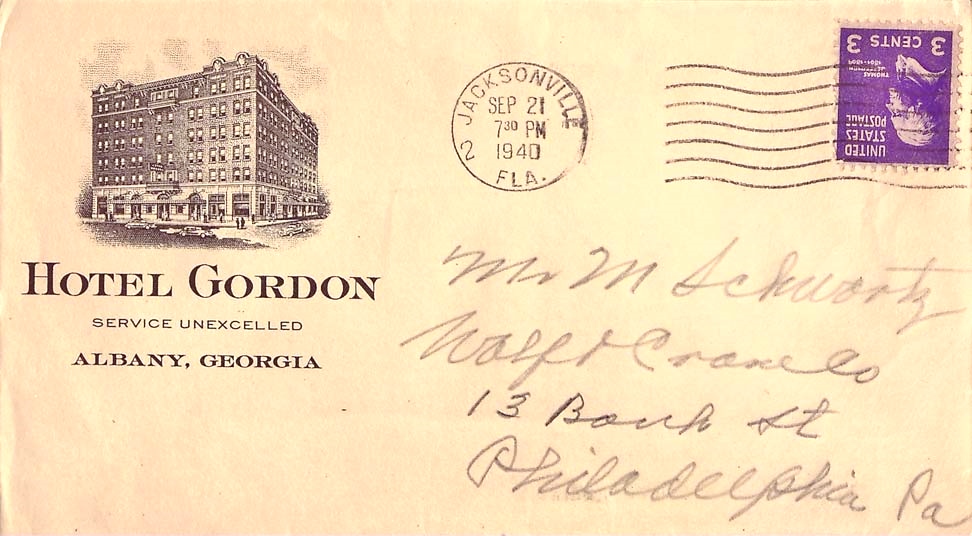 HOTEL GORDON
SERVICE UNEXCELLED
ALBANY, GEORGIA
JACKSONVILLE
SEP 21
7 30 PM
1940
2
FLA.
UNITED
STATES
POSTAGE
THOMAS
JEFFERSON
1801-1809
3 CENTS 3
Mr M Schwartz
Wolf & Crane Co
13 Bank St
Philadelphia Pa